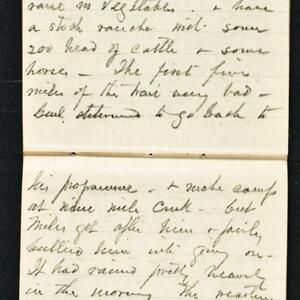 raise in vegetables. & have
a stock rancho with some
200 head of cattle & some
horses - The first five
miles of the trail very bad -
determined to go back to
his programme - & make camp
at nine mile Creek - but
Miles got after him & fairly
bullied him into going on -
It had rained pretty heavily
in the morning the weather